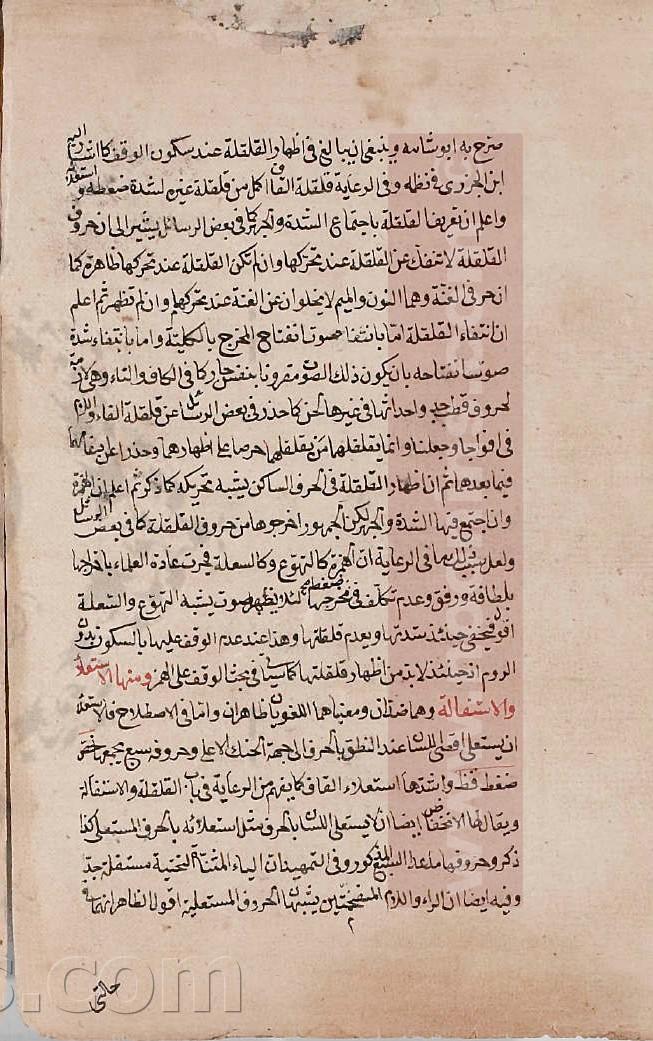 صرح به ابو شامه وينبغى ان يبالغ فى اظهار القلقلة عند سكون الوقف كما اشار اليه
ابن الجزرى فى نظمه وفى الرعاية قلقلة القاف اكمل من قلقلة غيره لشدة ضغطه و استعلائه
واعلم ان تعريف القلقلة باجتماع الشدة والجهر كما فى بعض الرسائل يشير الى ان حروف
القلقلة لا تنفك عن القلقلة عند تحركها وان لم تكن القلقلة عند تحركها ظاهرة كما
ان حرفى الغنة وهما النون والميم لا يخلوان عن الغنة عند تحركهما وان لم تظهر ثم اعلم
ان انتفاء القلقلة اما بانتفاء صوت انفتاح المخرج بالكلية واما بانتفاء شدة
صوت انفتاحه بان يكون ذلك الصوت مقرونا بنفس جار كما فى الكاف والتاء وهى لازمة
لحروف قطب جد واحداثها فى غيرها لحن كما حذر فى بعض الرسائل عن قلقلة الفاء واللام
فى افواجا وجعلنا وانما يقلقلهما من يقلقلهما حرصا على اظهارهما وحذرا عن ادغامهما
فيما بعدهما ثم ان اظهار القلقلة فى الحرف الساكن يشبه تحريكه كما ذكر ثم اعلم ان الهمزة
وان اجتمع فيها الشدة والجهر لكن الجمهور اخرجوها من حروف القلقلة كما فى بعض الرسائل
ولعل سبب ذلك ما فى الرعاية ان الهمزة كالتهوع وكالسعلة فجرت عادة العلماء باخراجها
بلطافة ورفق وعدم تكلف فى ضغط مخرجها لئلا يظهر صوت يشبه التهوع والسعلة
اقول فيخفى حينئذ شدتها ويعدم قلقلتها وهذا عند عدم الوقف عليها بالسكون بدون
الروم اذ حينئذ لا بد من اظهار قلقلتها كما سيأتى فى بحث الوقف على الهمز ومنها الاستعلاء
والاستفالة وهما ضدان ومعنياهما اللغويان ظاهران واما فى الاصطلاح فالاستعلاء
ان يستعلى اقصى اللسان عند النطق بالحرف الى جهة الحنك الاعلى وحروفه سبع يجمعها خص
ضغط قظ واشدها استعلاء القاف كما يفهم من الرعاية فى باب القلقلة والاستفالة
ويقال لها الانخفاض ايضا ان لا يستعلى اللسان بالحرف مثل استعلائه بالحرف المستعلى كذا
ذكر وحروفها ما عدا السبع المذكور وفى التمهيد ان الياء المثناة التحتية مستفلة جدا
وفيه ايضا ان الراء واللام المفخمتين يشبهان الحروف المستعلية اقول الظاهر انهما